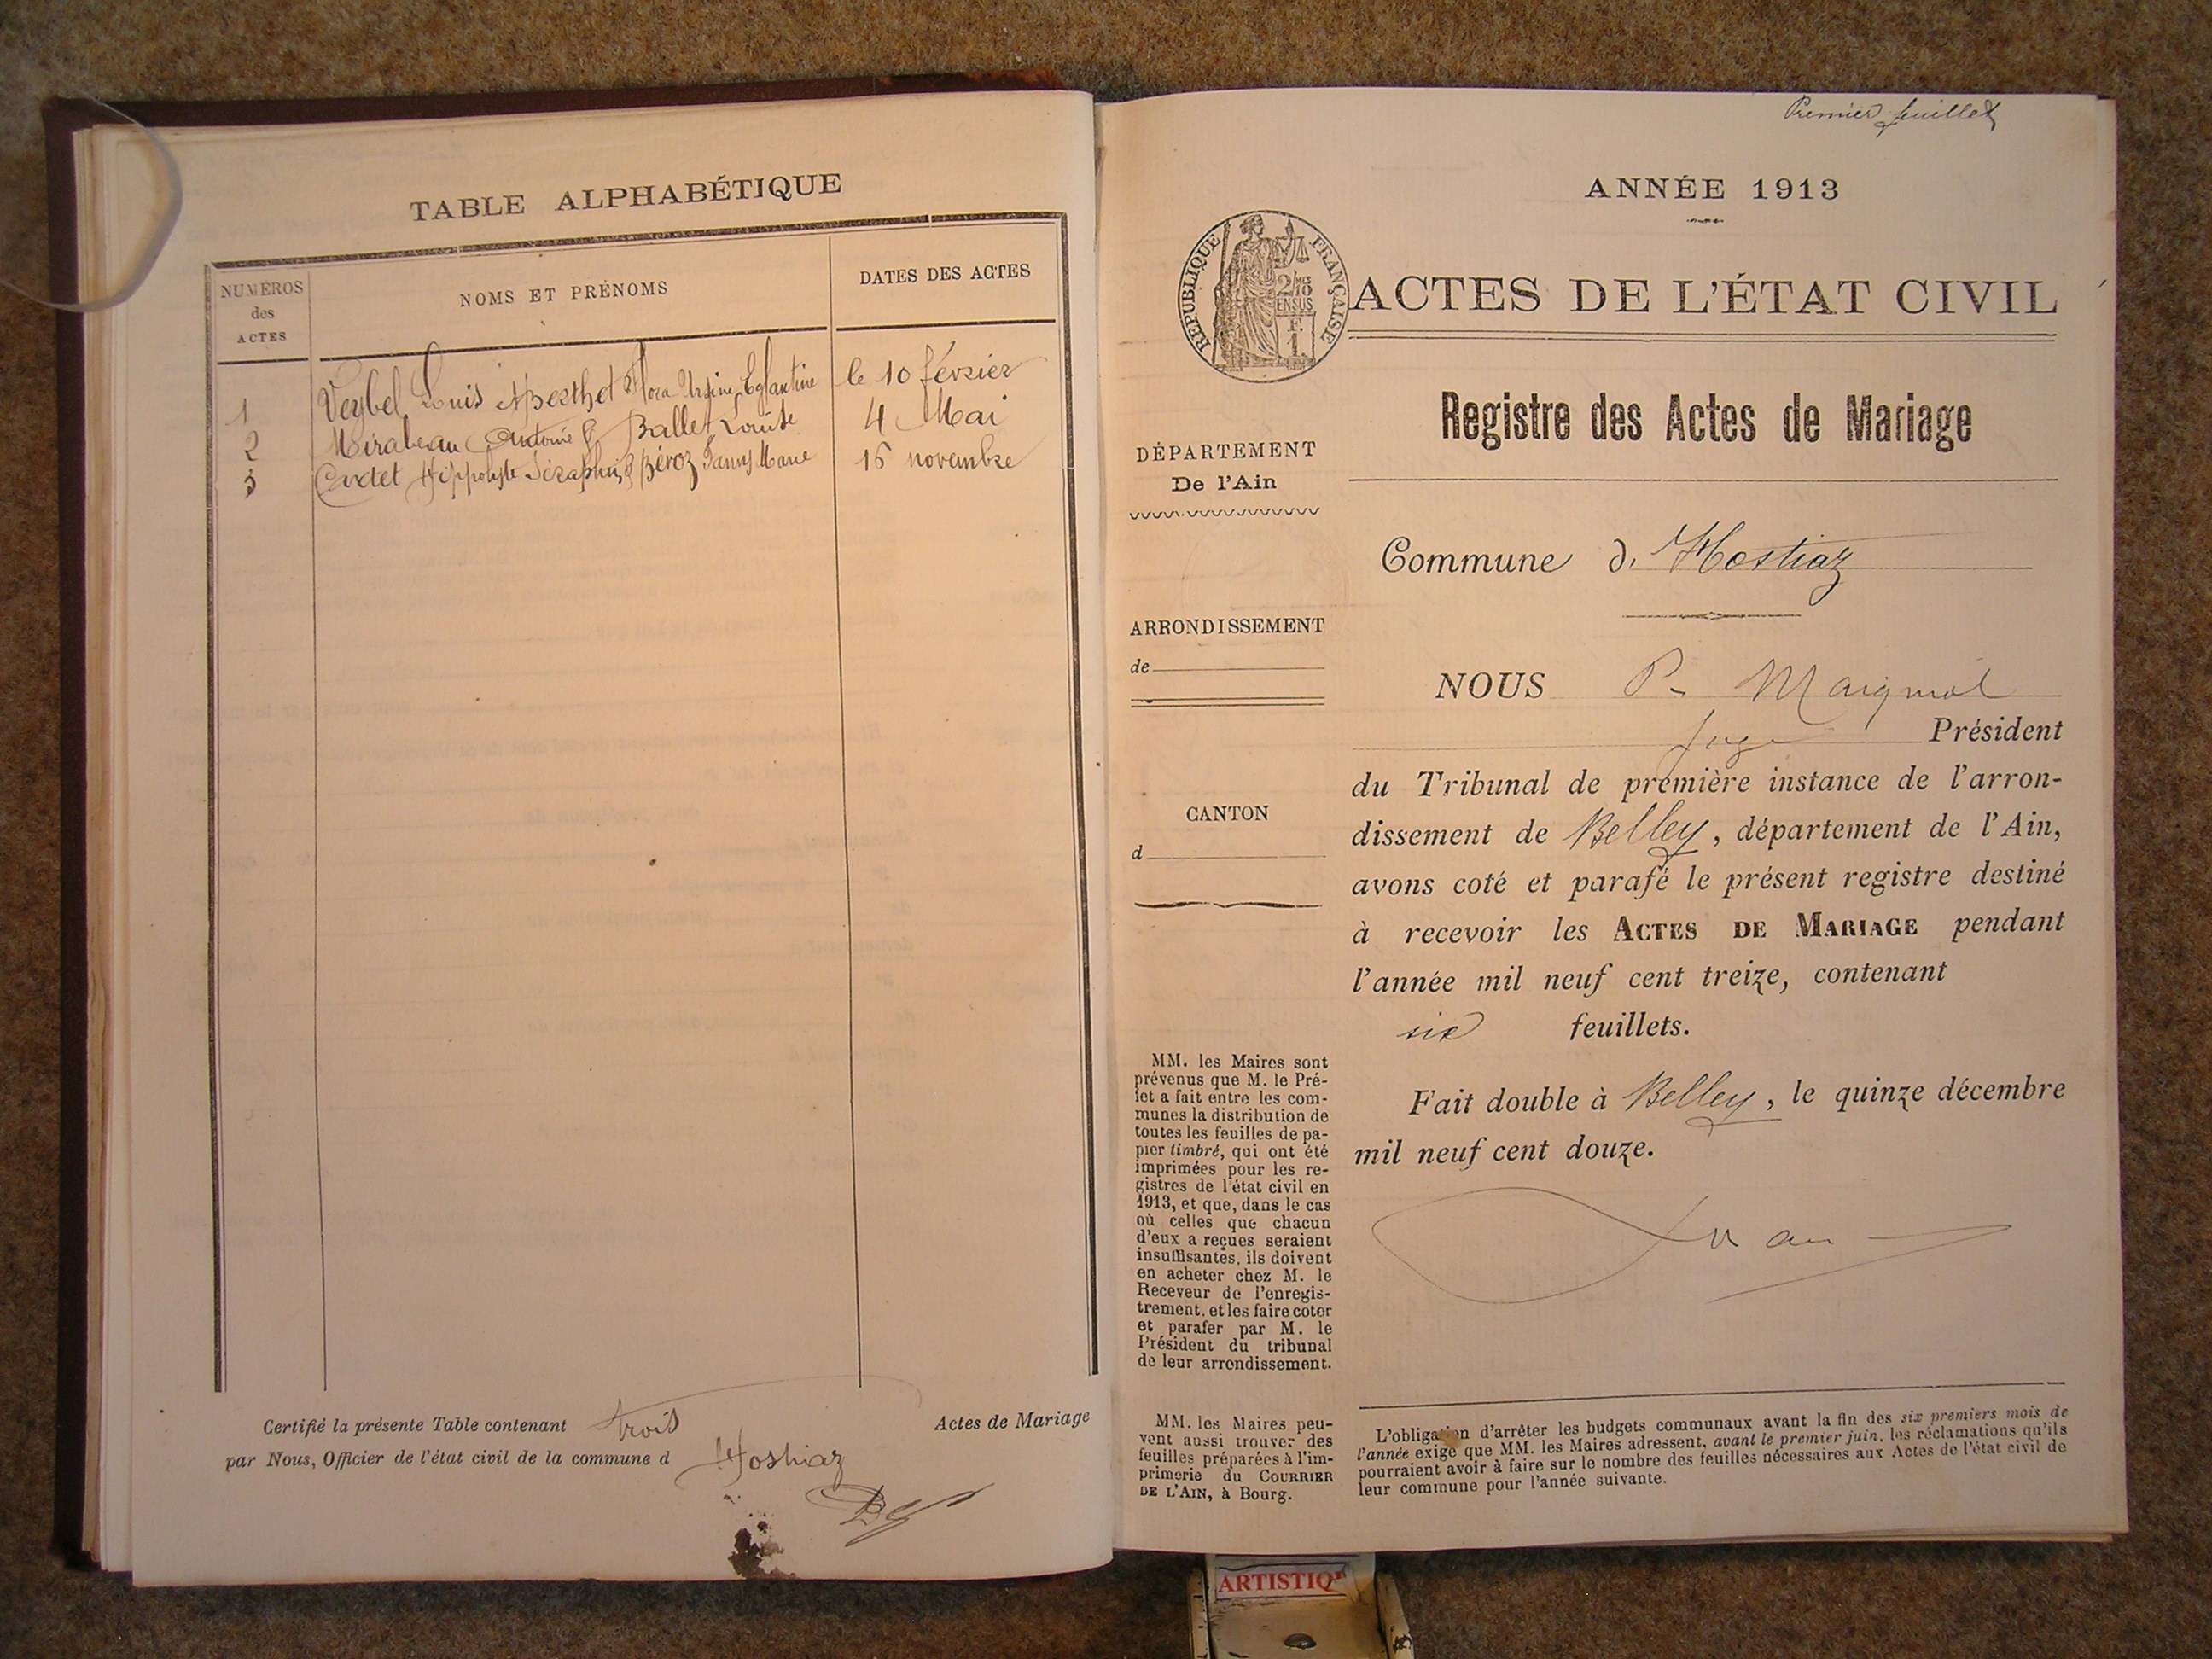 TABLE ALPHABÉTIQUE
NUMÉROS
des
ACTES
NOMS ET PRÉNOMS
DATES DES ACTES
1 Veybel Louis & Berthet Flora Ursine Eglantine le 10 février
2 Mirabeau Antoine & Ballet Louise 4 Mai
3 Hippolyte Séraphin & Béroz Fanny Marie 15 novembre
Certifié la présente Table contenant trois Actes de Mariage
par Nous, Officier de l'état civil de la commune d Hostiaz
Premier feuillet
ANNÉE 1913
RÉPUBLIQUE FRANÇAISE
2/10
EN SUS
F.
1.
ACTES DE L'ÉTAT CIVIL
Registre des Actes de Mariage
DÉPARTEMENT
De l'Ain
ARRONDISSEMENT
de
CANTON
d
MM. les Maires sont
prévenus que M. le Pré-
fet a fait entre les com-
munes la distribution de
toutes les feuilles de pa-
pier timbré, qui ont été
imprimées pour les re-
gistres de l'état civil en
1913, et que, dans le cas
où celles que chacun
d'eux a reçues seraient
insuffisantes, ils doivent
en acheter chez M. le
Receveur de l'enregis-
trement, et les faire coter
et parafer par M. le
Président du tribunal
de leur arrondissement.
MM. les Maires peu-
vent aussi trouver des
feuilles préparées à l'im-
primerie du COURRIER
DE L'AIN, à Bourg.
Commune d'Hostiaz
NOUS P. Maignol
Juge Président
du Tribunal de première instance de l'arron-
dissement de Belley, département de l'Ain,
avons coté et parafé le présent registre destiné
à recevoir les ACTES DE MARIAGE pendant
l'année mil neuf cent treize, contenant
six feuillets.
Fait double à Belley, le quinze décembre
mil neuf cent douze.
L'obligation d'arrêter les budgets communaux avant la fin des six premiers mois de
l'année exige que MM. les Maires adressent, avant le premier juin, les réclamations qu'ils
pourraient avoir à faire sur le nombre des feuilles nécessaires aux Actes de l'état civil de
leur commune pour l'année suivante.
ARTISTIQ